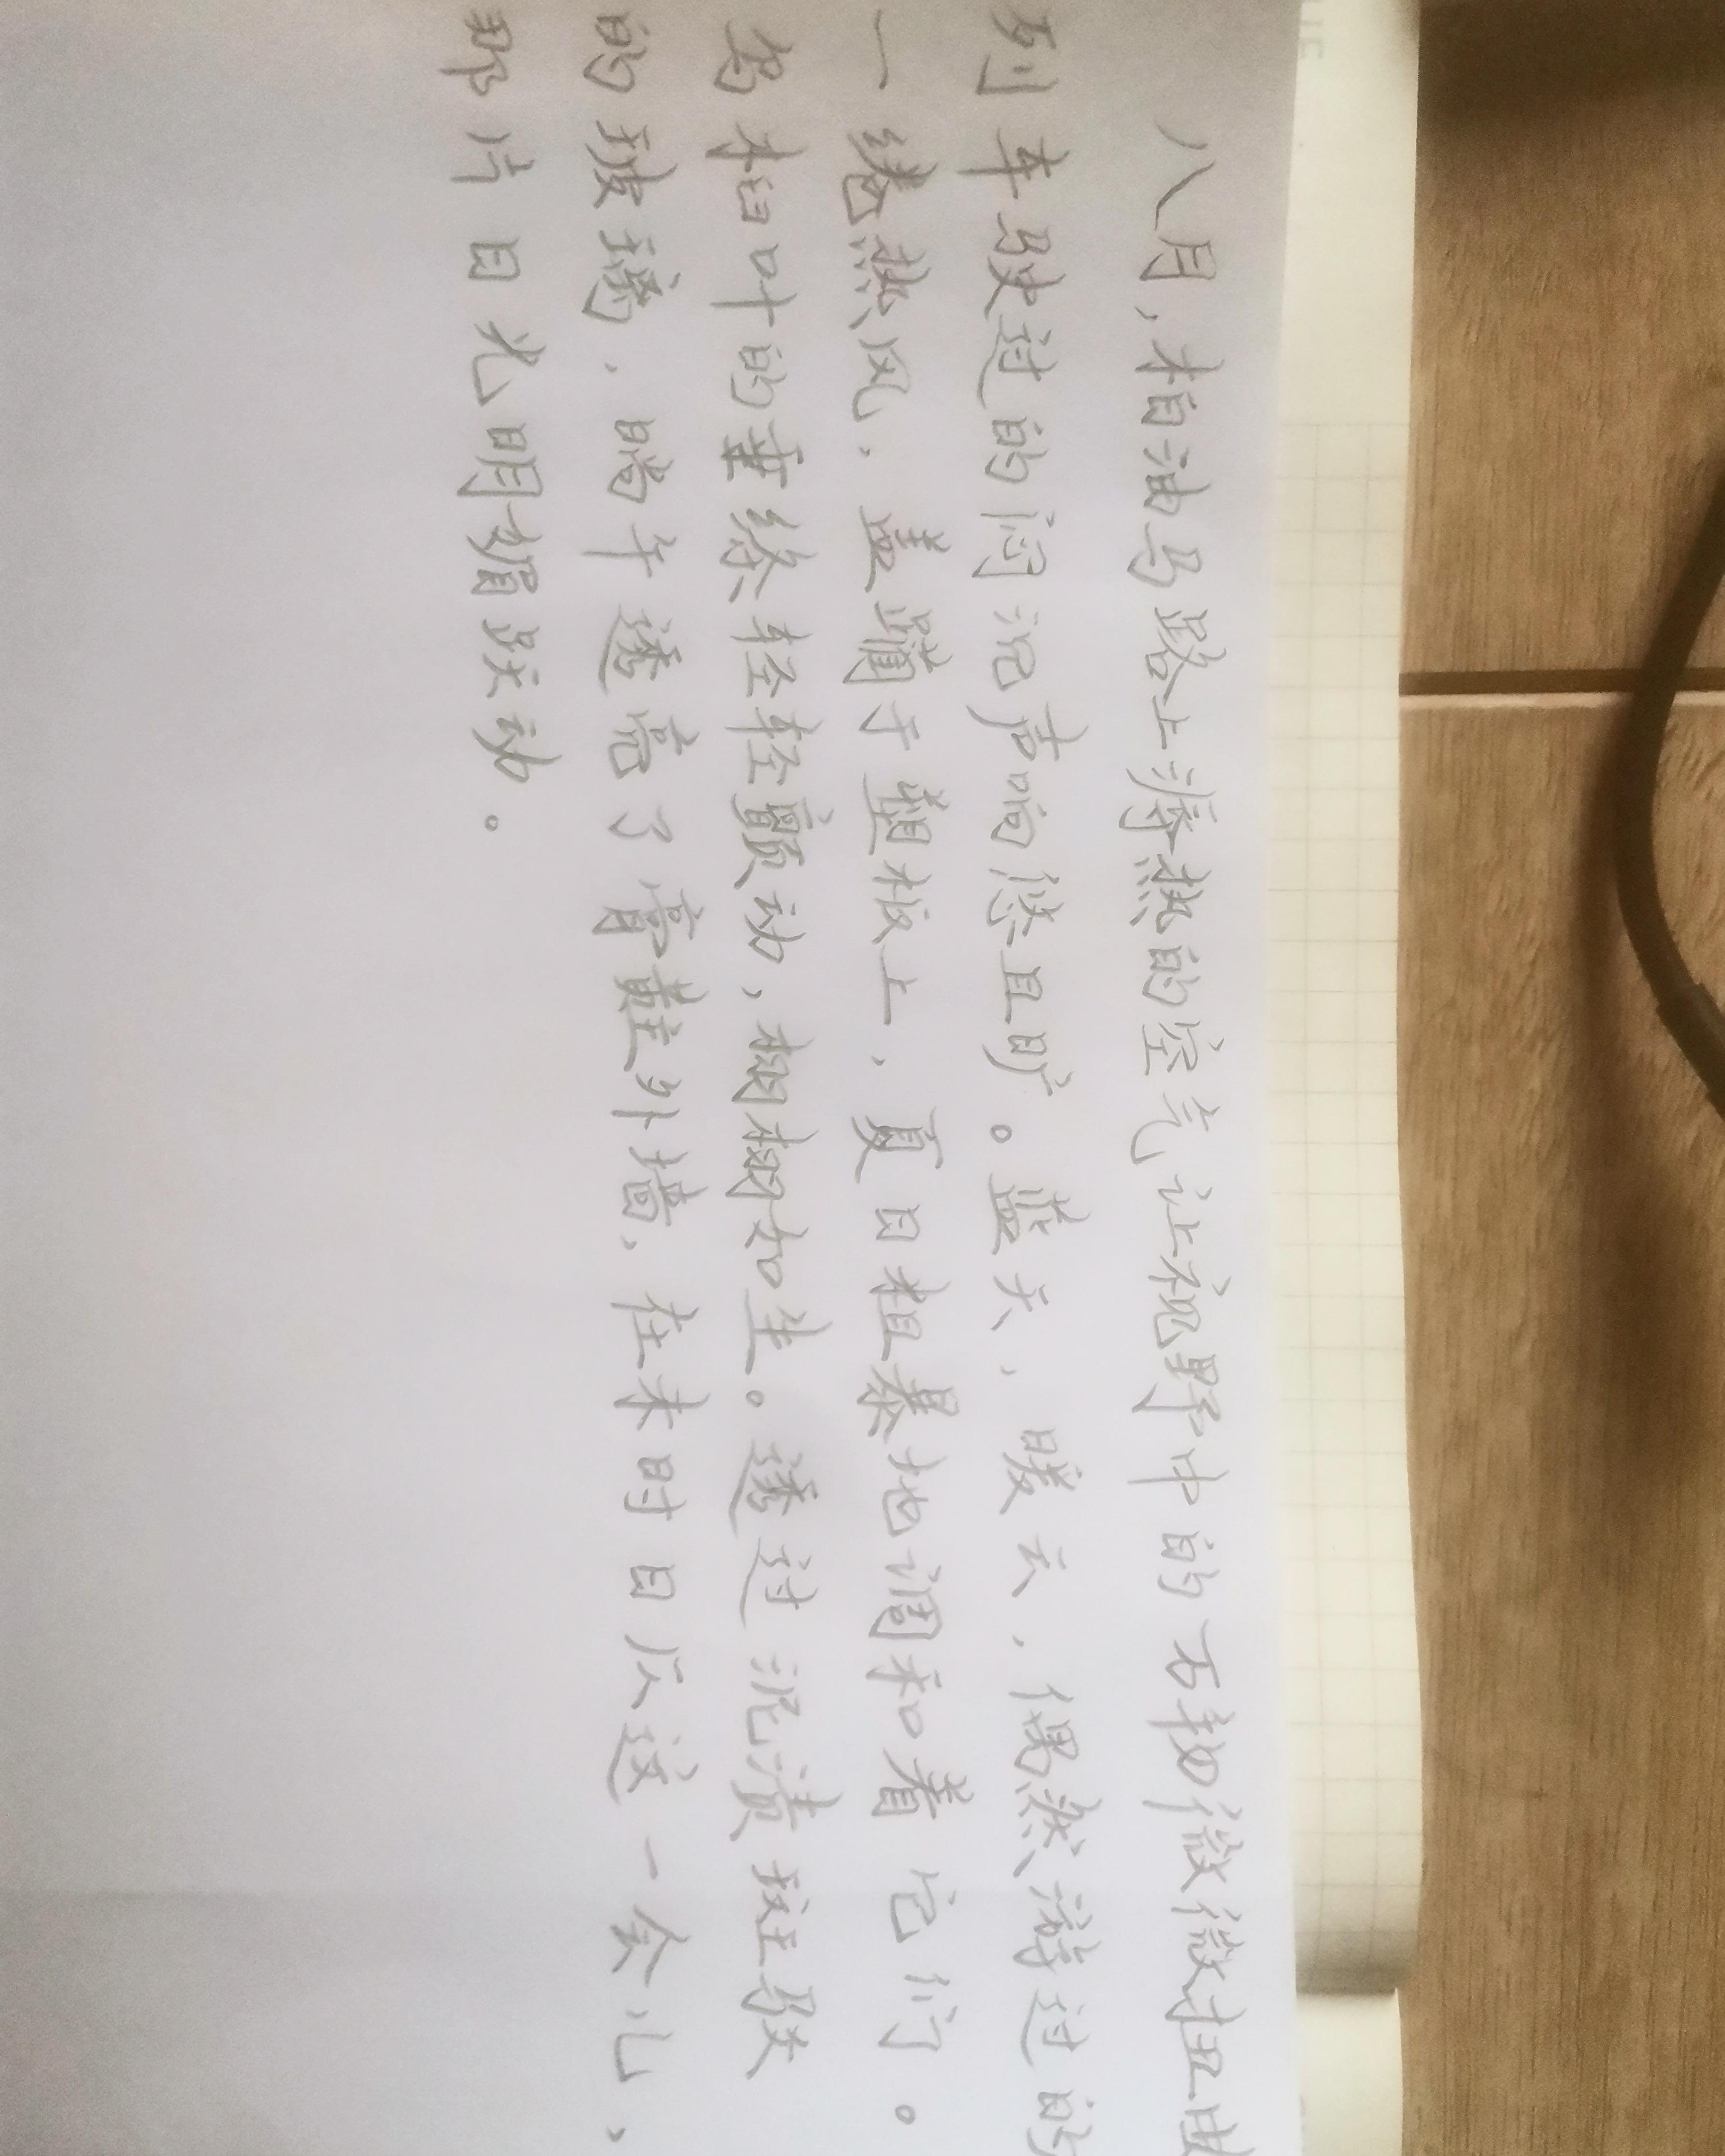 八月，柏油马路上溽热的空气让视野中的万物微微扭曲
列车驶过的闷沉声响悠且旷。蓝天、暖云、偶然游过的
一绻热风，盖躏于塑板上，夏日粗暴地调和着它们。
乌桕叶的垂绦轻轻颤动，栩栩如生。透过泥渍斑驳
的玻璃，晌午透亮了膏黈外墙，在来时日仄这一会儿，
那片日光明媚跃动。